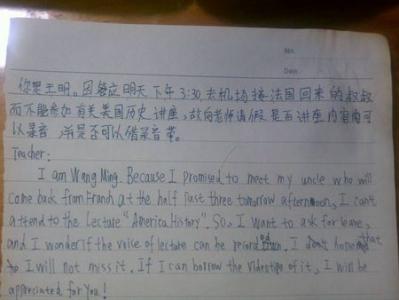 No.
Date.
你是王明。因答应明天下午3:30去机场接法国回来的叔叔
而不能参加有关美国历史讲座,故向老师请假 是否讲座内容
以录音,并是否可以借录音带。
Teacher:
I am Wang Ming. Because I promised to meet my uncle who will
come back from Franch at the half past three tomorrow afternoon, I can't
attend to the Lecture "America History". So, I want to ask for leave,
and I wonder if the voice of lecture can be record. I don't hope that
I will not miss it. If I can borrow the videotape of it, I will be
appreciated for you!